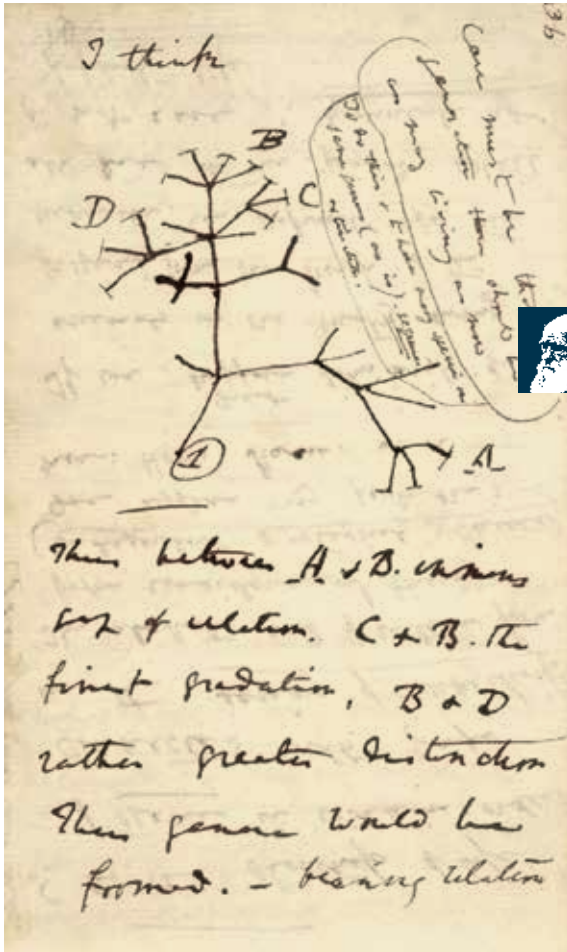 36
I think
Case must be that
generation then should be
as many living as now
To do this & to have many species in
same genus (as is). requires
extinction.
B
C
D
A
1
Thus between A & B. immense
gap of relation. C & B. the
finest gradation, B & D
rather greater distinction
Thus genera would be
formed. — bearing relation